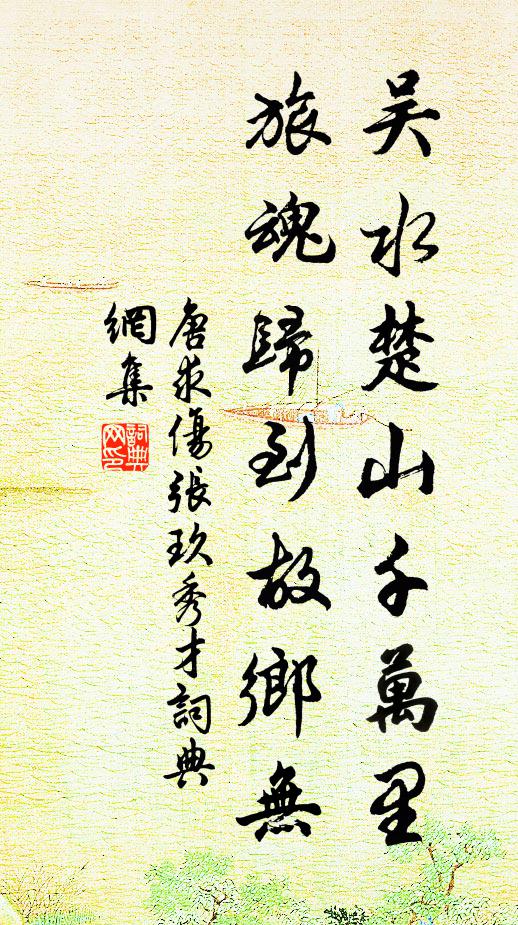 吴水楚山千萬里
旅魂歸到故鄉無
唐求傷張玖秀才詞典
網集
詞典
网印